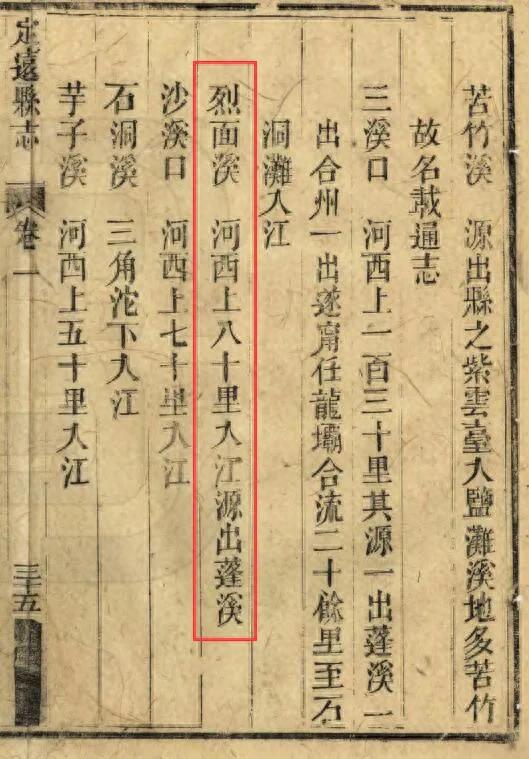 苦竹溪 源出縣之紫雲臺入鹽灘溪地多苦竹
故名載通志
三溪口 河西上一百三十里其源一出蓬溪一
出合州一出遂甯任龍壩合流二十餘里至石
洞灘入江
烈面溪 河西上八十里入江源出蓬溪
沙溪口 河西上七十里入江
石洞溪 三角沱下入江
芋子溪 河西上五十里入江
定遠縣志 卷一 三十五